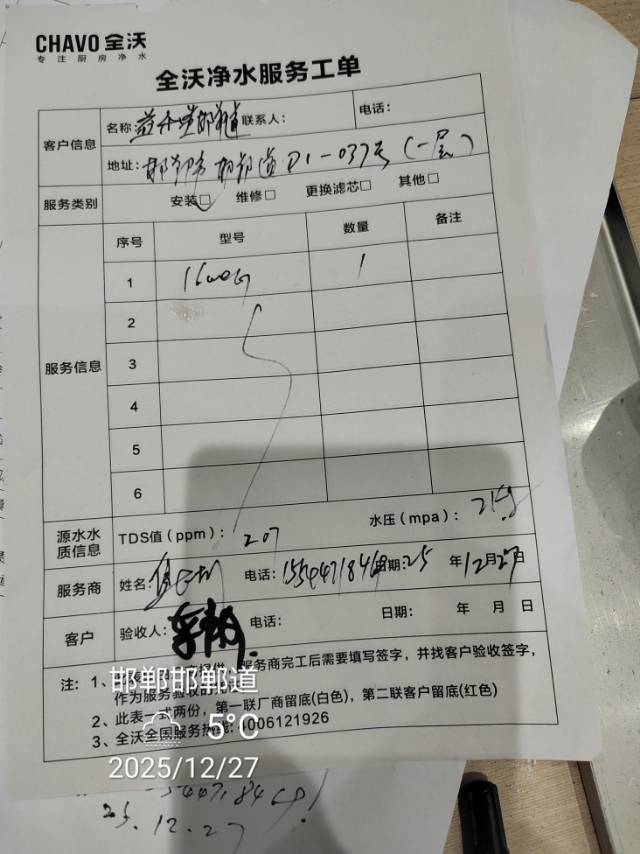 CHAVO 全沃
专注厨房净水
全沃净水服务工单
客户信息
名称 益禾堂邯郸道 联系人： 电话：
地址：邯郸市邯郸道D1-037号（一层）
服务类别 安装□ 维修□ 更换滤芯□ 其他□
服务信息
序号 型号 数量 备注
1 1600G 1
2
3
4
5
6
源水水质信息 TDS值（ppm）：207 水压（mpa）：2kg
服务商 姓名： 电话：日期：25 年12月27日
客户 验收人： 电话： 日期： 年 月 日
注：1、 服务商完工后需要填写签字，并找客户验收签字，
作为服务验收
2、此表一式两份，第一联厂商留底(白色)，第二联客户留底(红色)
3、全沃全国服务热线：4006121926
邯郸邯郸道
5°C
2025/12/27
25.12.27